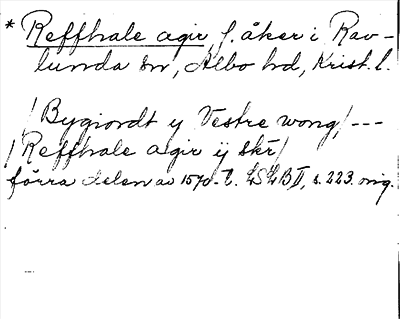 * Reffhale agir f. åker i Rav-
lunda sn, Albo hd, Krist. l.
/Bygiordt y Vestre wong,/ ---
/Reffhale agir ij skr/
förra delen av 1570-t. LSLB II, s. 223. orig.